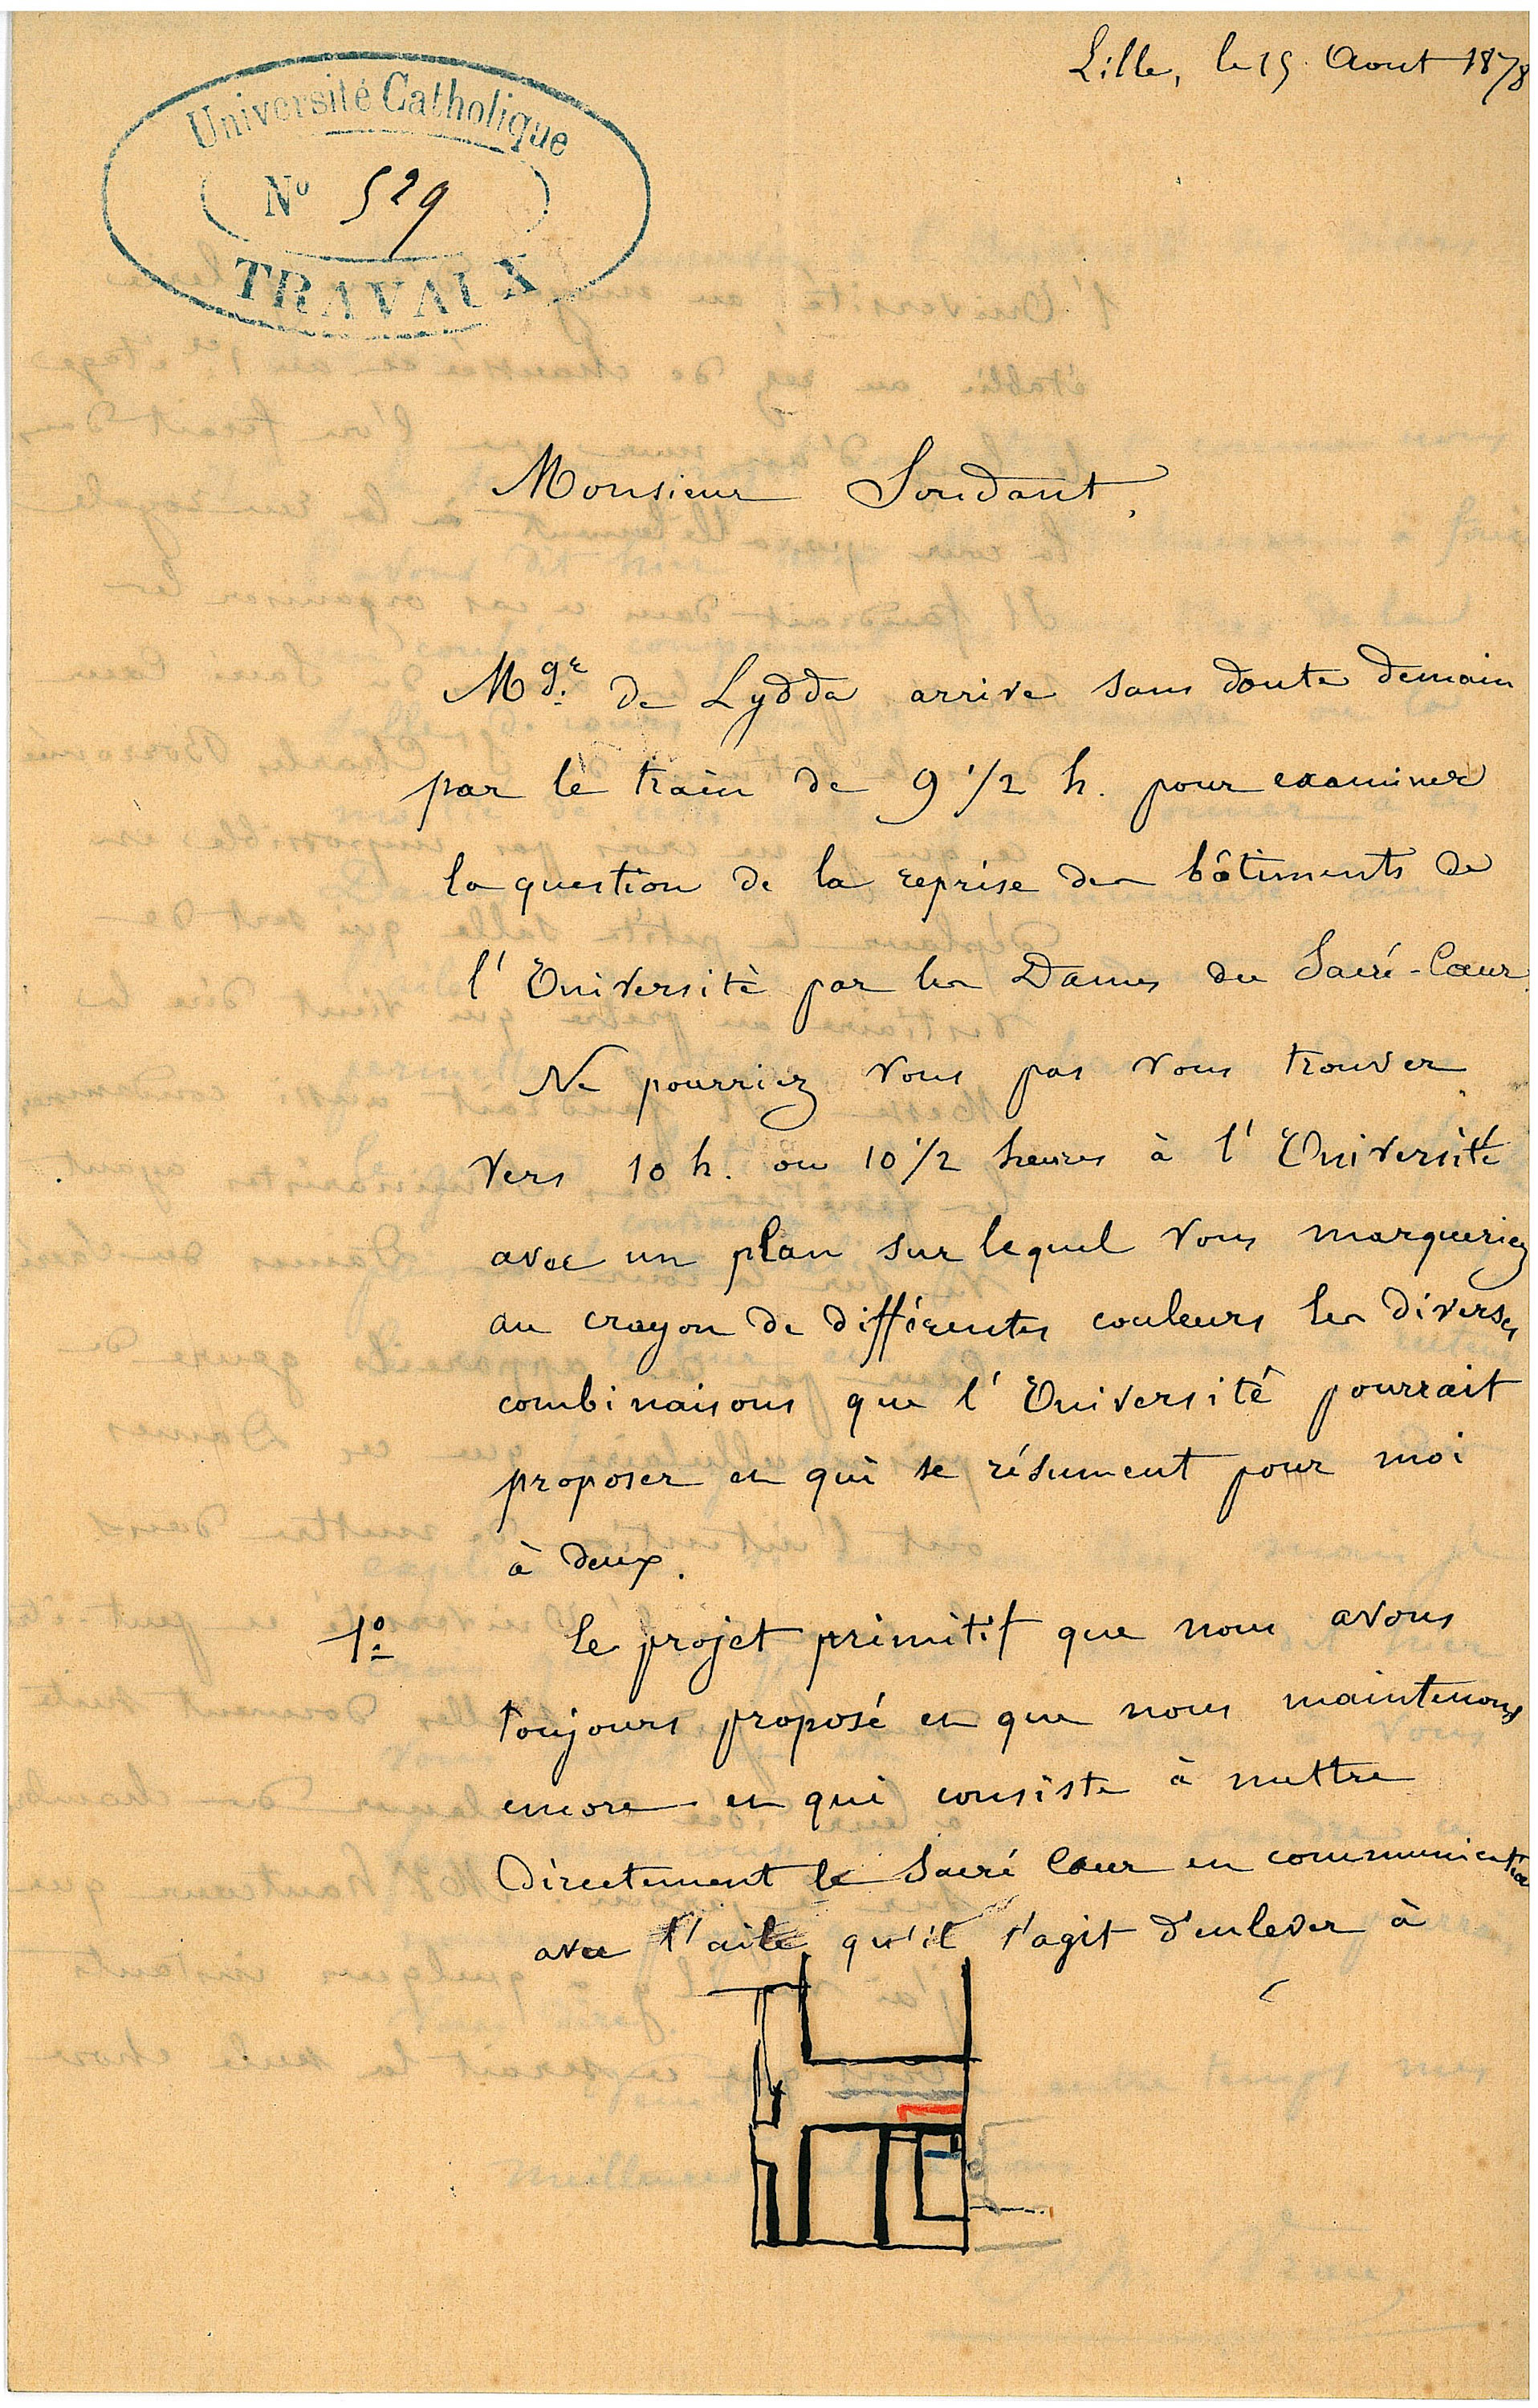 Lille, le 15 Aout 1878
Université Catholique
No 529
TRAVAUX
Monsieur Soudant,
Mgr. de Lydda arrive sans doute demain
par le train de 9 1/2 h. pour examiner
la question de la reprise des bâtiments de
l'Université par les Dames du Sacré-Cœur.
Ne pourriez vous pas vous trouver
vers 10 h. ou 10 1/2 heures à l'Université
avec un plan sur lequel vous marqueriez
au crayon de différentes couleurs les diverses
combinaisons que l'Université pourrait
proposer et qui se résument pour moi
à deux.
1o Le projet primitif que nous avons
toujours proposé et que nous maintenons
encore et qui consiste à mettre
Directement le Sacré Cœur en communication
avec l'aile qu'il s'agit d'enlever à